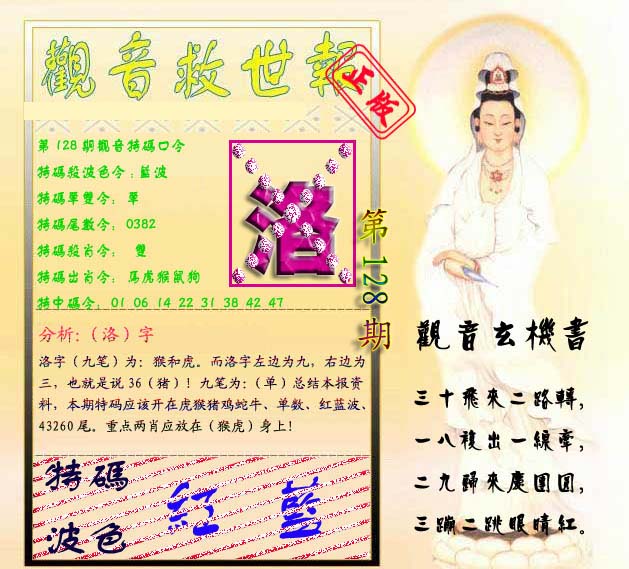 觀音救世報
正版
第128期觀音特碼口令
特碼殺波色令：藍波
特碼單雙令： 單
特碼尾數令： 0382
特碼殺肖令： 雙
特碼出肖令： 馬虎猴鼠狗
特中碼令： 01 06 14 22 31 38 42 47
洛
第128期
分析:（洛）字
洛字（九笔）为：猴和虎。而洛字左边为九，右边为
三，也就是说 36（猪）！九笔为：（单）总结本报资
料，本期特码应该开在虎猴猪鸡蛇牛、单数、红蓝波、
43260 尾。重点两肖应放在（猴虎）身上！
特碼
波色
紅 藍
觀音玄機書
三十飛來二路轉，
一八複出一線牽，
二九歸來慶團圓，
三蹦二跳眼睛紅。